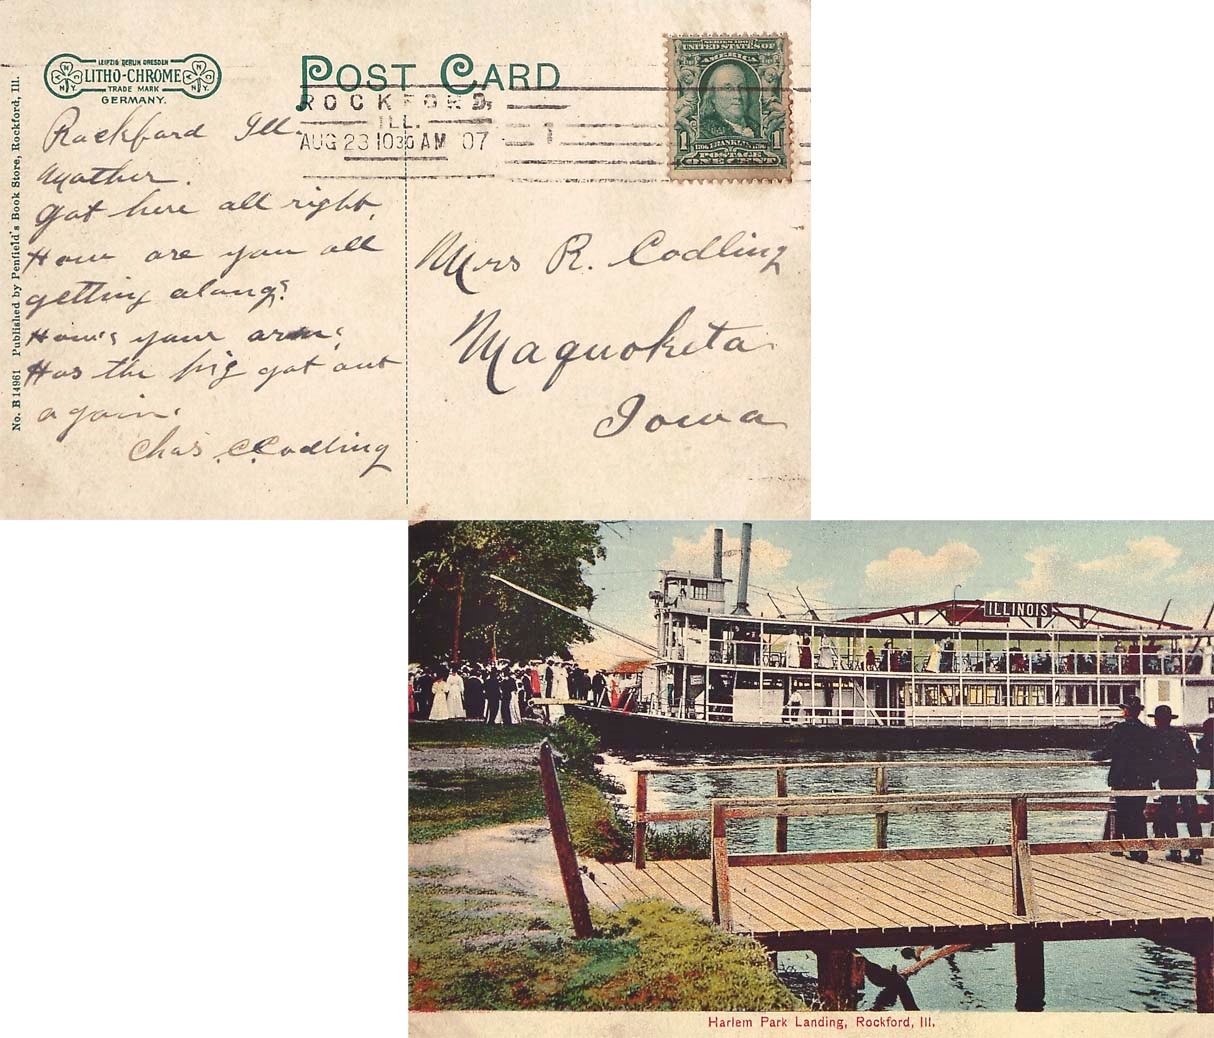 LEIPZIG BERLIN DRESDEN
LITHO-CHROME
TRADE MARK
GERMANY.
N N
Y Y
POST CARD
ROCKFORD,
ILL.
AUG 23 1030 AM 07
1
SERIES 1902
UNITED STATES OF
AMERICA
1 1706 FRANKLIN 1790 1
POSTAGE
ONE CENT
No. B 14961 Published by Penfield's Book Store, Rockford, Ill.
Rockford Ill.
Mother.
Got here all right,
How are you all
getting along?
How's your arm?
Has the pig got out
again?
Chas. C. Codling
Mrs R. Codling
Maquoketa
Iowa
ILLINOIS
Harlem Park Landing, Rockford, Ill.